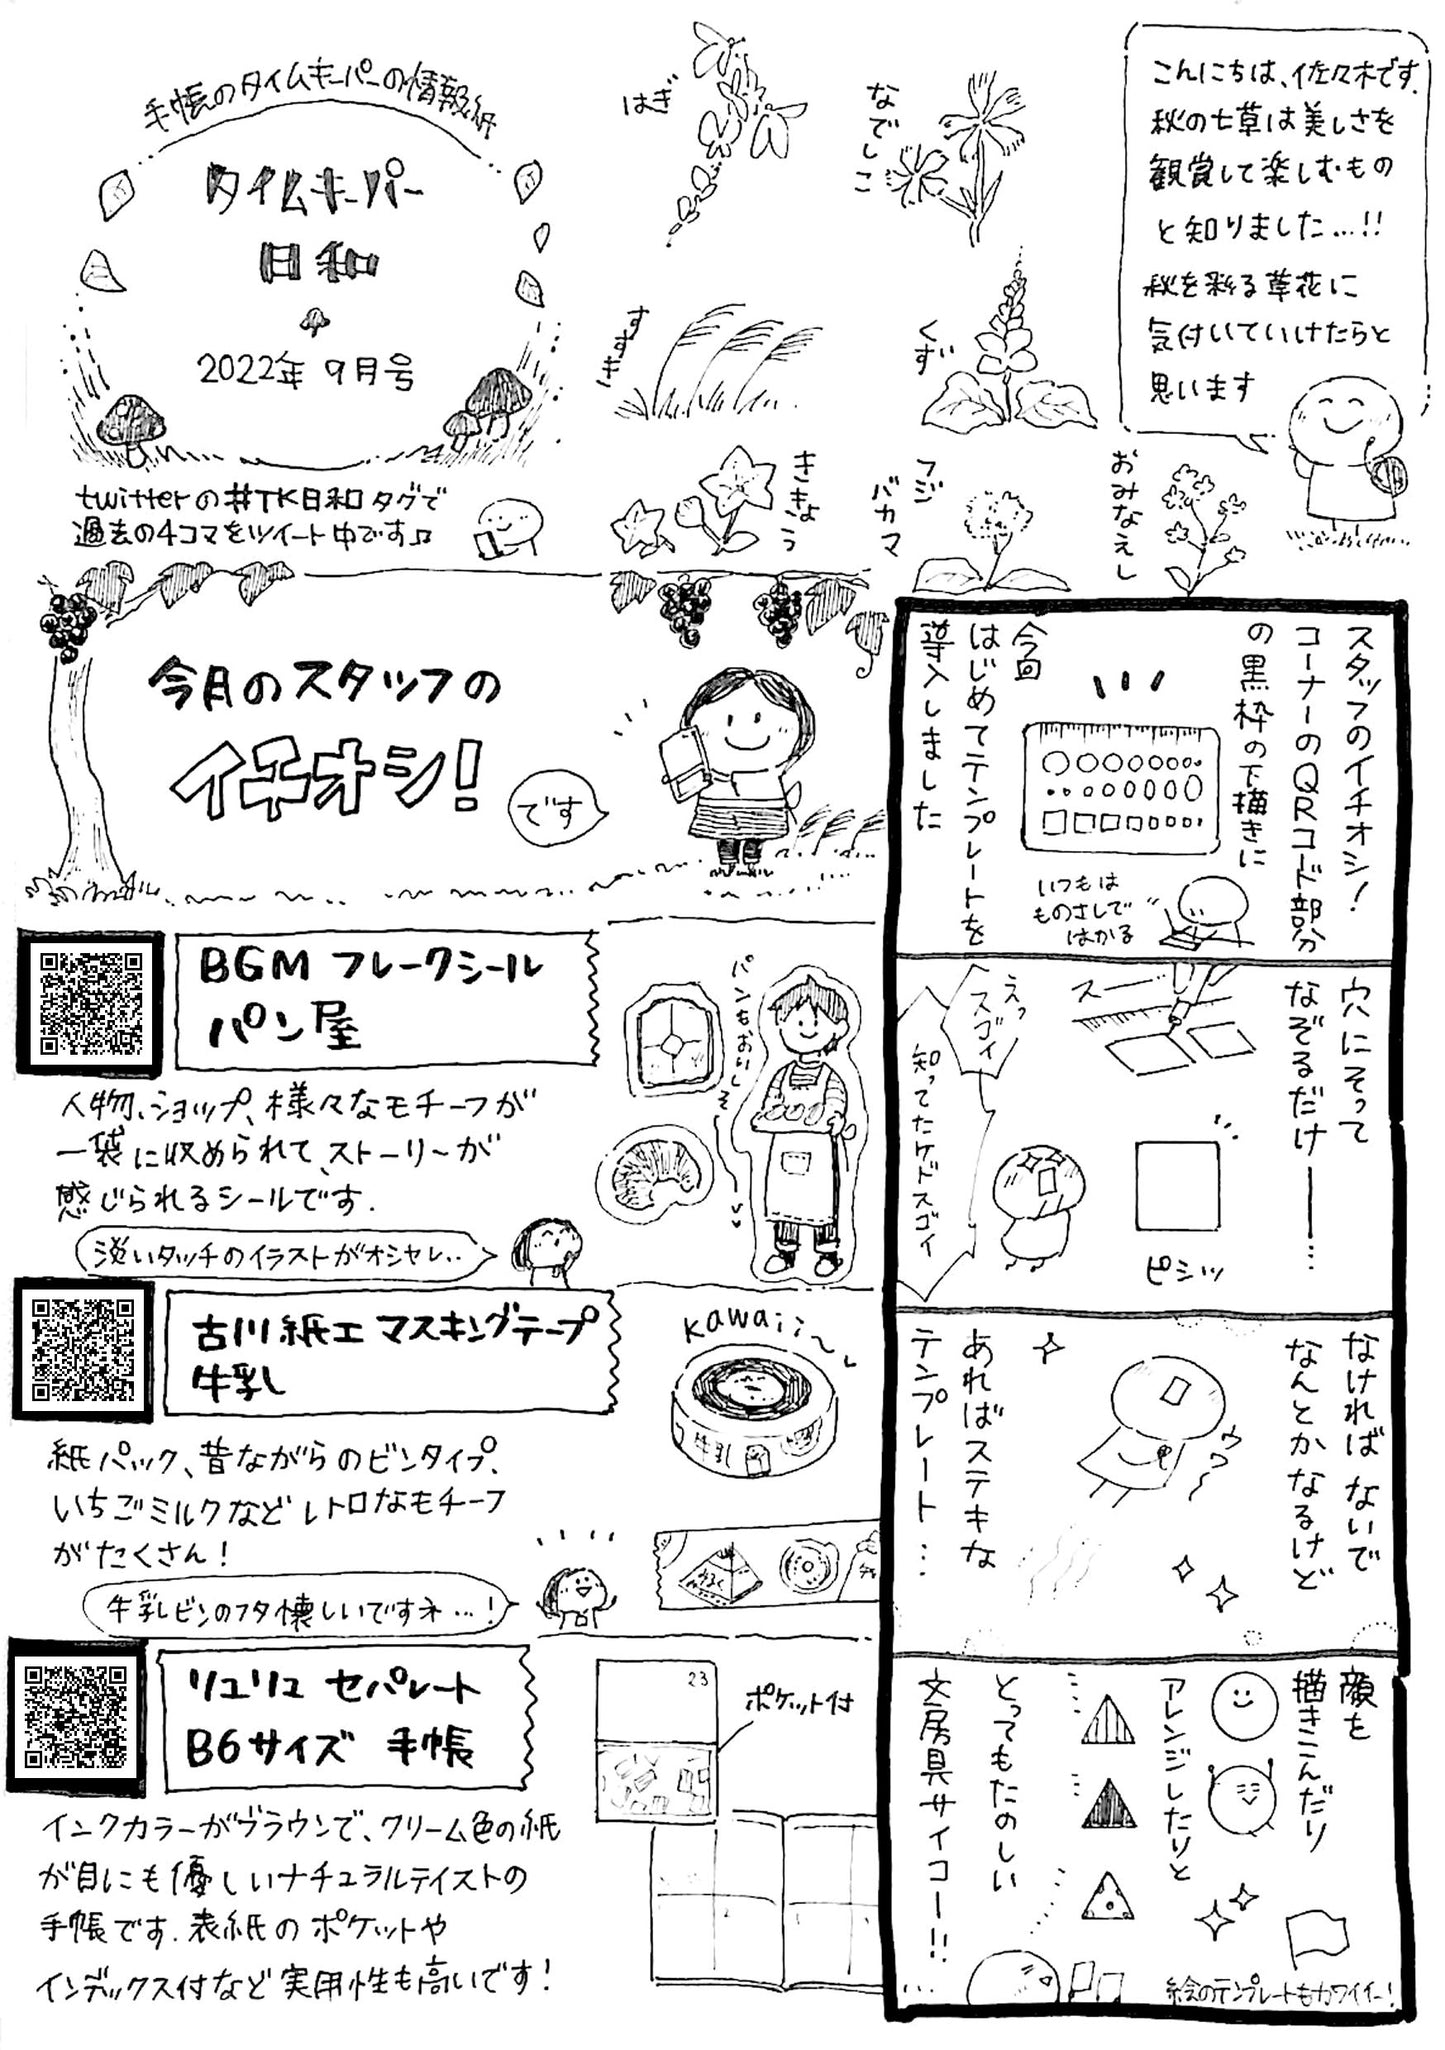 手帳のタイムキーパーの情報紙
タイムキーパー
日和
2022年 9月号
twitterの#TK日和タグで
過去の4コマをツイート中です♫
はぎ
なでしこ
すすき
くず
ききょう
フジ
バカマ
おみなえし
こんにちは、佐々木です.
秋の七草は美しさを
観賞して楽しむもの
と知りました…!!
秋を彩る草花に
気付いていけたらと
思います
今月のスタッフの
イチオシ!
です
BGM フレークシール
パン屋
人物、ショップ、様々なモチーフが
一袋に収められて、ストーリーが
感じられるシールです.
淡いタッチのイラストがオシャレ..
パンもおいしそ〜
古川紙工 マスキングテープ
牛乳
紙パック、昔ながらのビンタイプ、
いちごミルクなどレトロなモチーフ
がたくさん!
牛乳ビンのフタ懐しいですネ…!
kawaii〜
牛乳
リュリュ セパレート
B6サイズ 手帳
インクカラーがブラウンで、クリーム色の紙
が目にも優しいナチュラルテイストの
手帳です.表紙のポケットや
インデックス付など実用性も高いです!
23
ポケット付
スタッフのイチオシ!
コーナーのQRコード部分
の黒枠の下描きに
今回
はじめてテンプレートを
導入しました
いつもは
ものさしで
はかる
穴にそって
なぞるだけ――…
スー
ピシッ
えっ
スゴイ
知ってたケドスゴイ
なければないで
なんとかなるけど
ウフ〜
あればステキな
テンプレート…
顔を
描きこんだり
アレンジしたりと
とってもたのしい
文房具サイコー!!
絵のテンプレートもカワイイー!